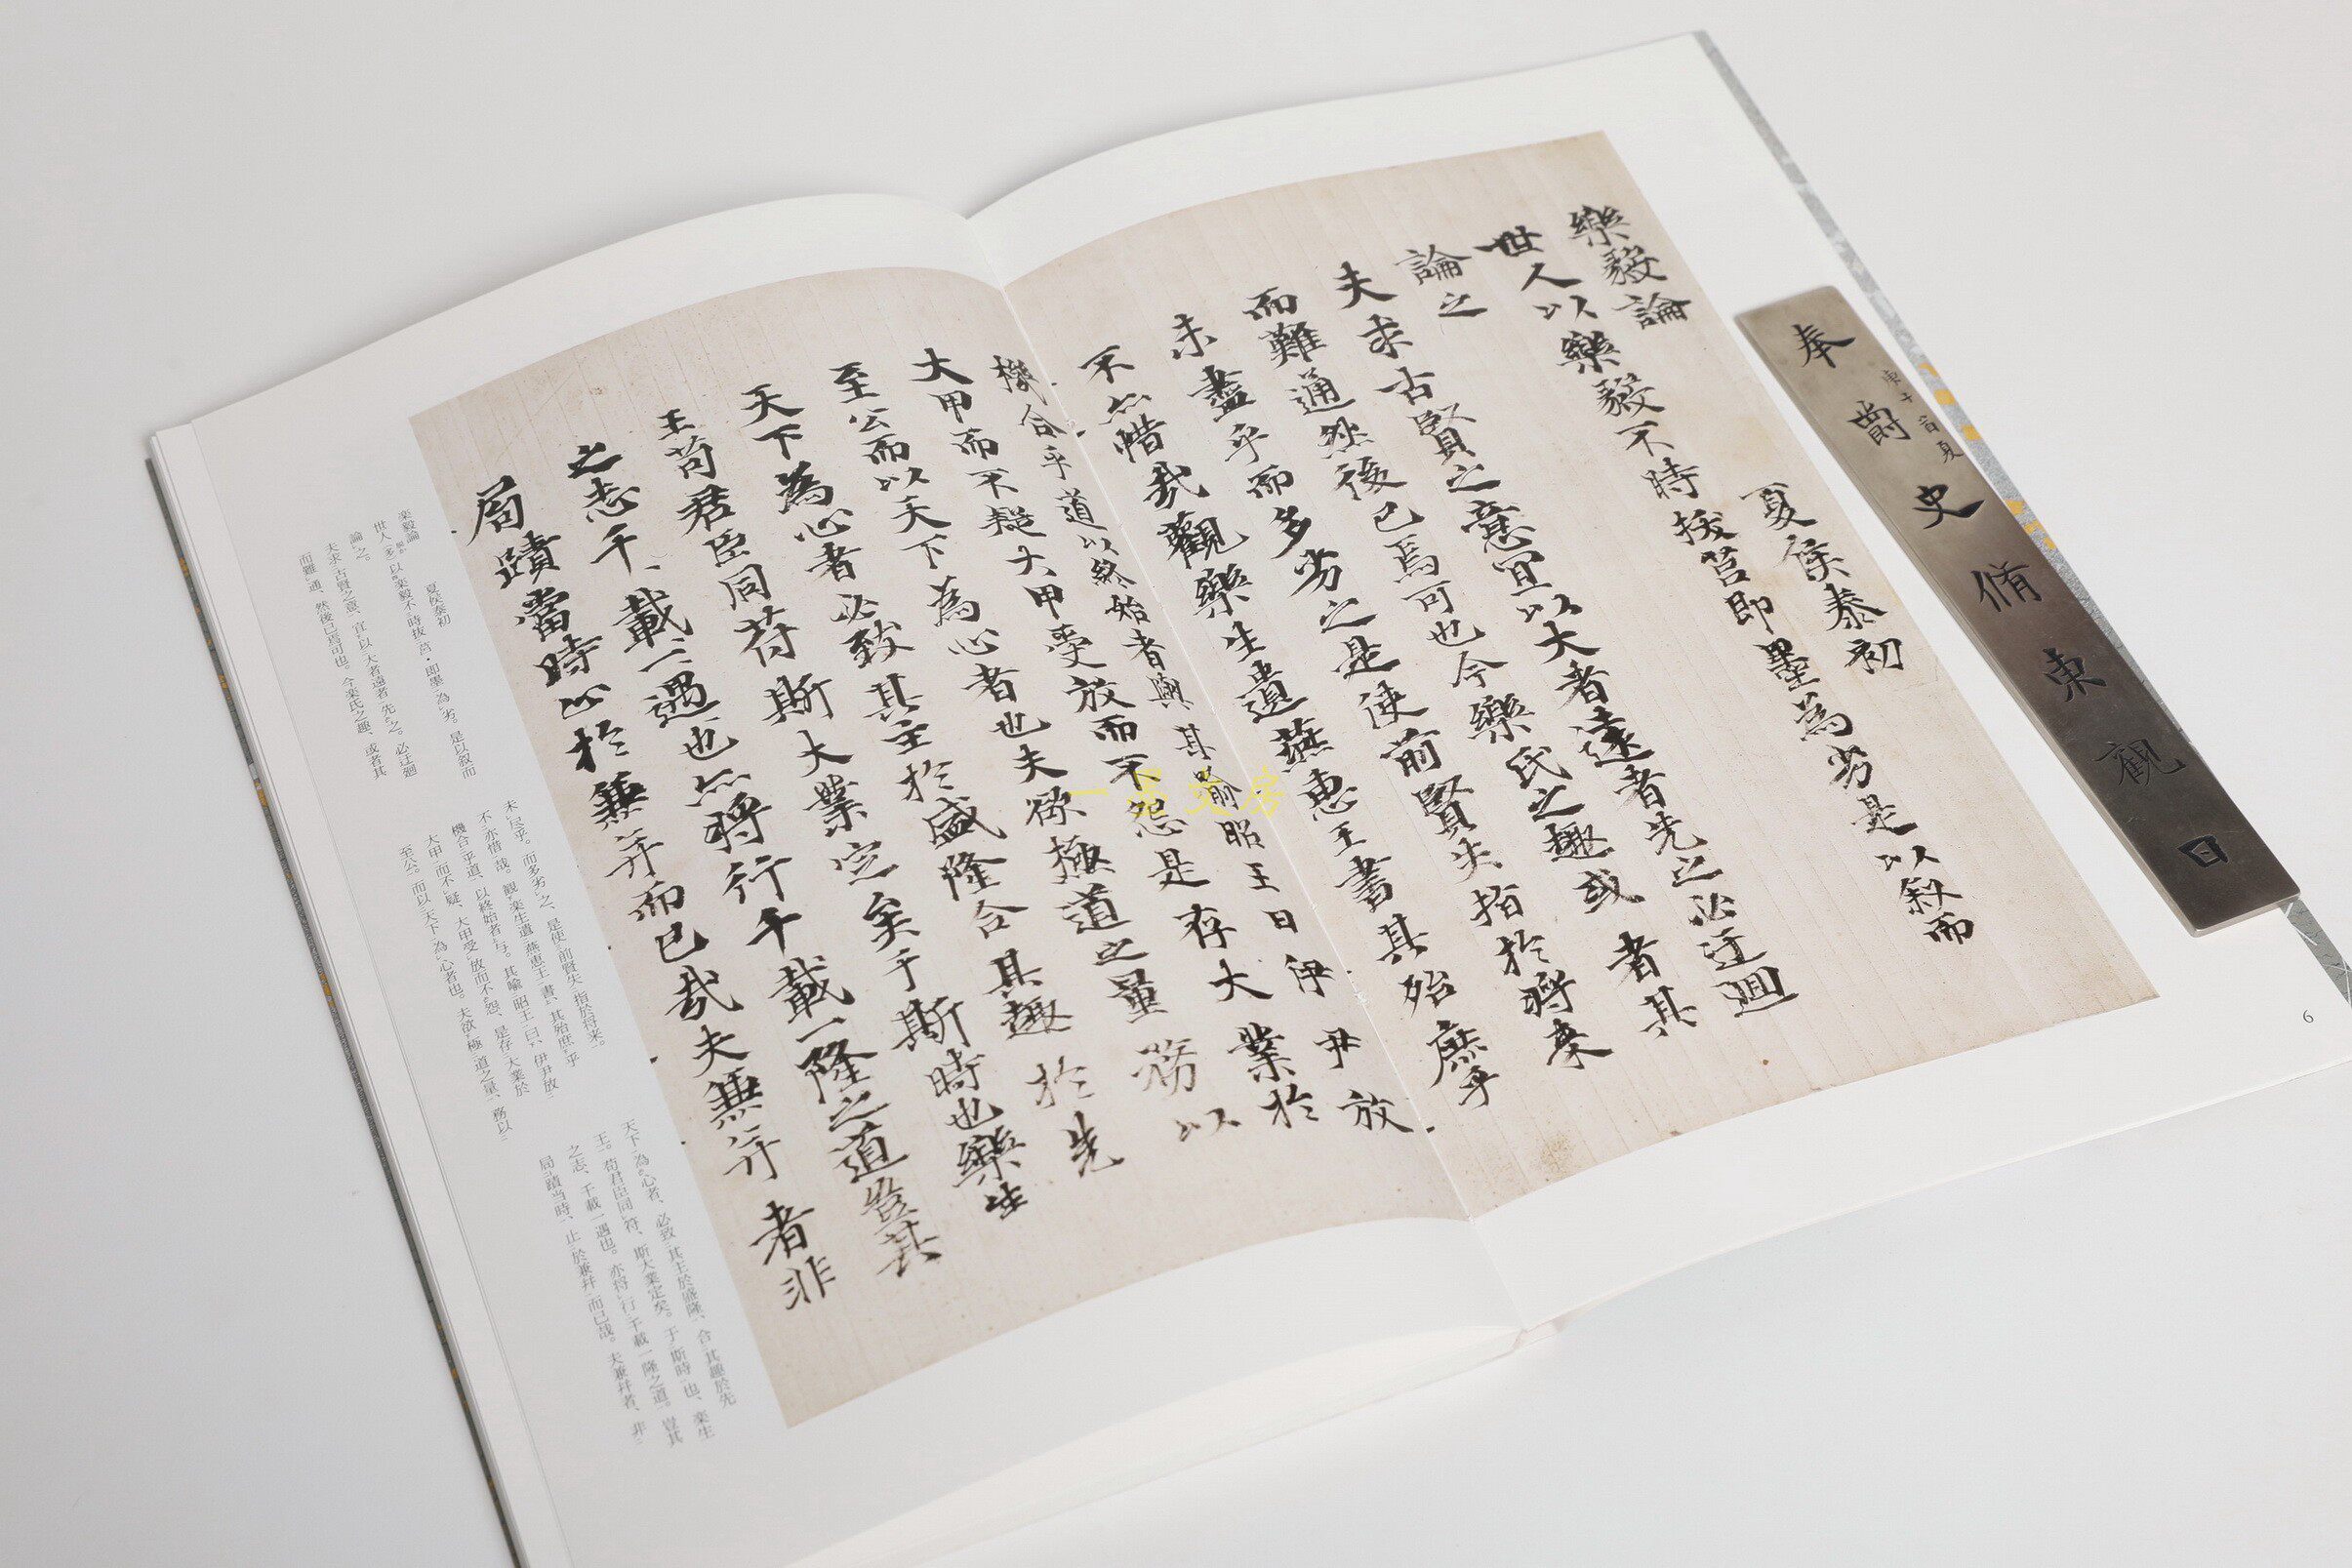 奉爵史脩東觀日
樂毅論 夏侯泰初
世人以樂毅不時拔莒即墨為劣是以叙而
論之
夫求古賢之意宜以大者遠者先之必迂迴
而難通然後已焉可也今樂氏之趣或者其
未盡乎而多劣之是使前賢失指於將来
不亦惜哉觀樂生遺燕惠王書其殆庶乎
機合乎道以終始者與其喻昭王曰伊尹放
大甲而不疑大甲受放而不怨是存大業於
至公而以天下為心者也夫欲極道之量務以
天下為心者必致其主於盛隆合其趣於先
王苟君臣同苻斯大業定矣于斯時也樂生
之志千載一遇也亦將行千載一隆之道豈其
局蹟當時止於兼并而已哉夫兼并者非
6
楽毅論 夏侯泰初
世人多以楽毅不時抜莒・即墨為劣。是以叙而
論之。
夫求古賢之意、宜以大者遠者先之。必迂廻
而難通、然後已焉可也。今楽氏之趣、或者其
未尽乎。而多劣之、是使前賢失指於将来。
不亦惜哉。観楽生遺燕恵王書、其殆庶乎
機合乎道、以終始者与。其喩昭王曰、伊尹放
大甲而不疑、大甲受放而不怨、是存大業於
至公、而以天下為心者也。夫欲極道之量、務以
天下為心者、必致其主於盛隆、合其趣於先
王。苟君臣同符、斯大業定矣。于斯時也、楽生
之志、千載一遇也。亦将行千載一隆之道。豈其
局蹟当時、止於兼并而已哉。夫兼并者、非